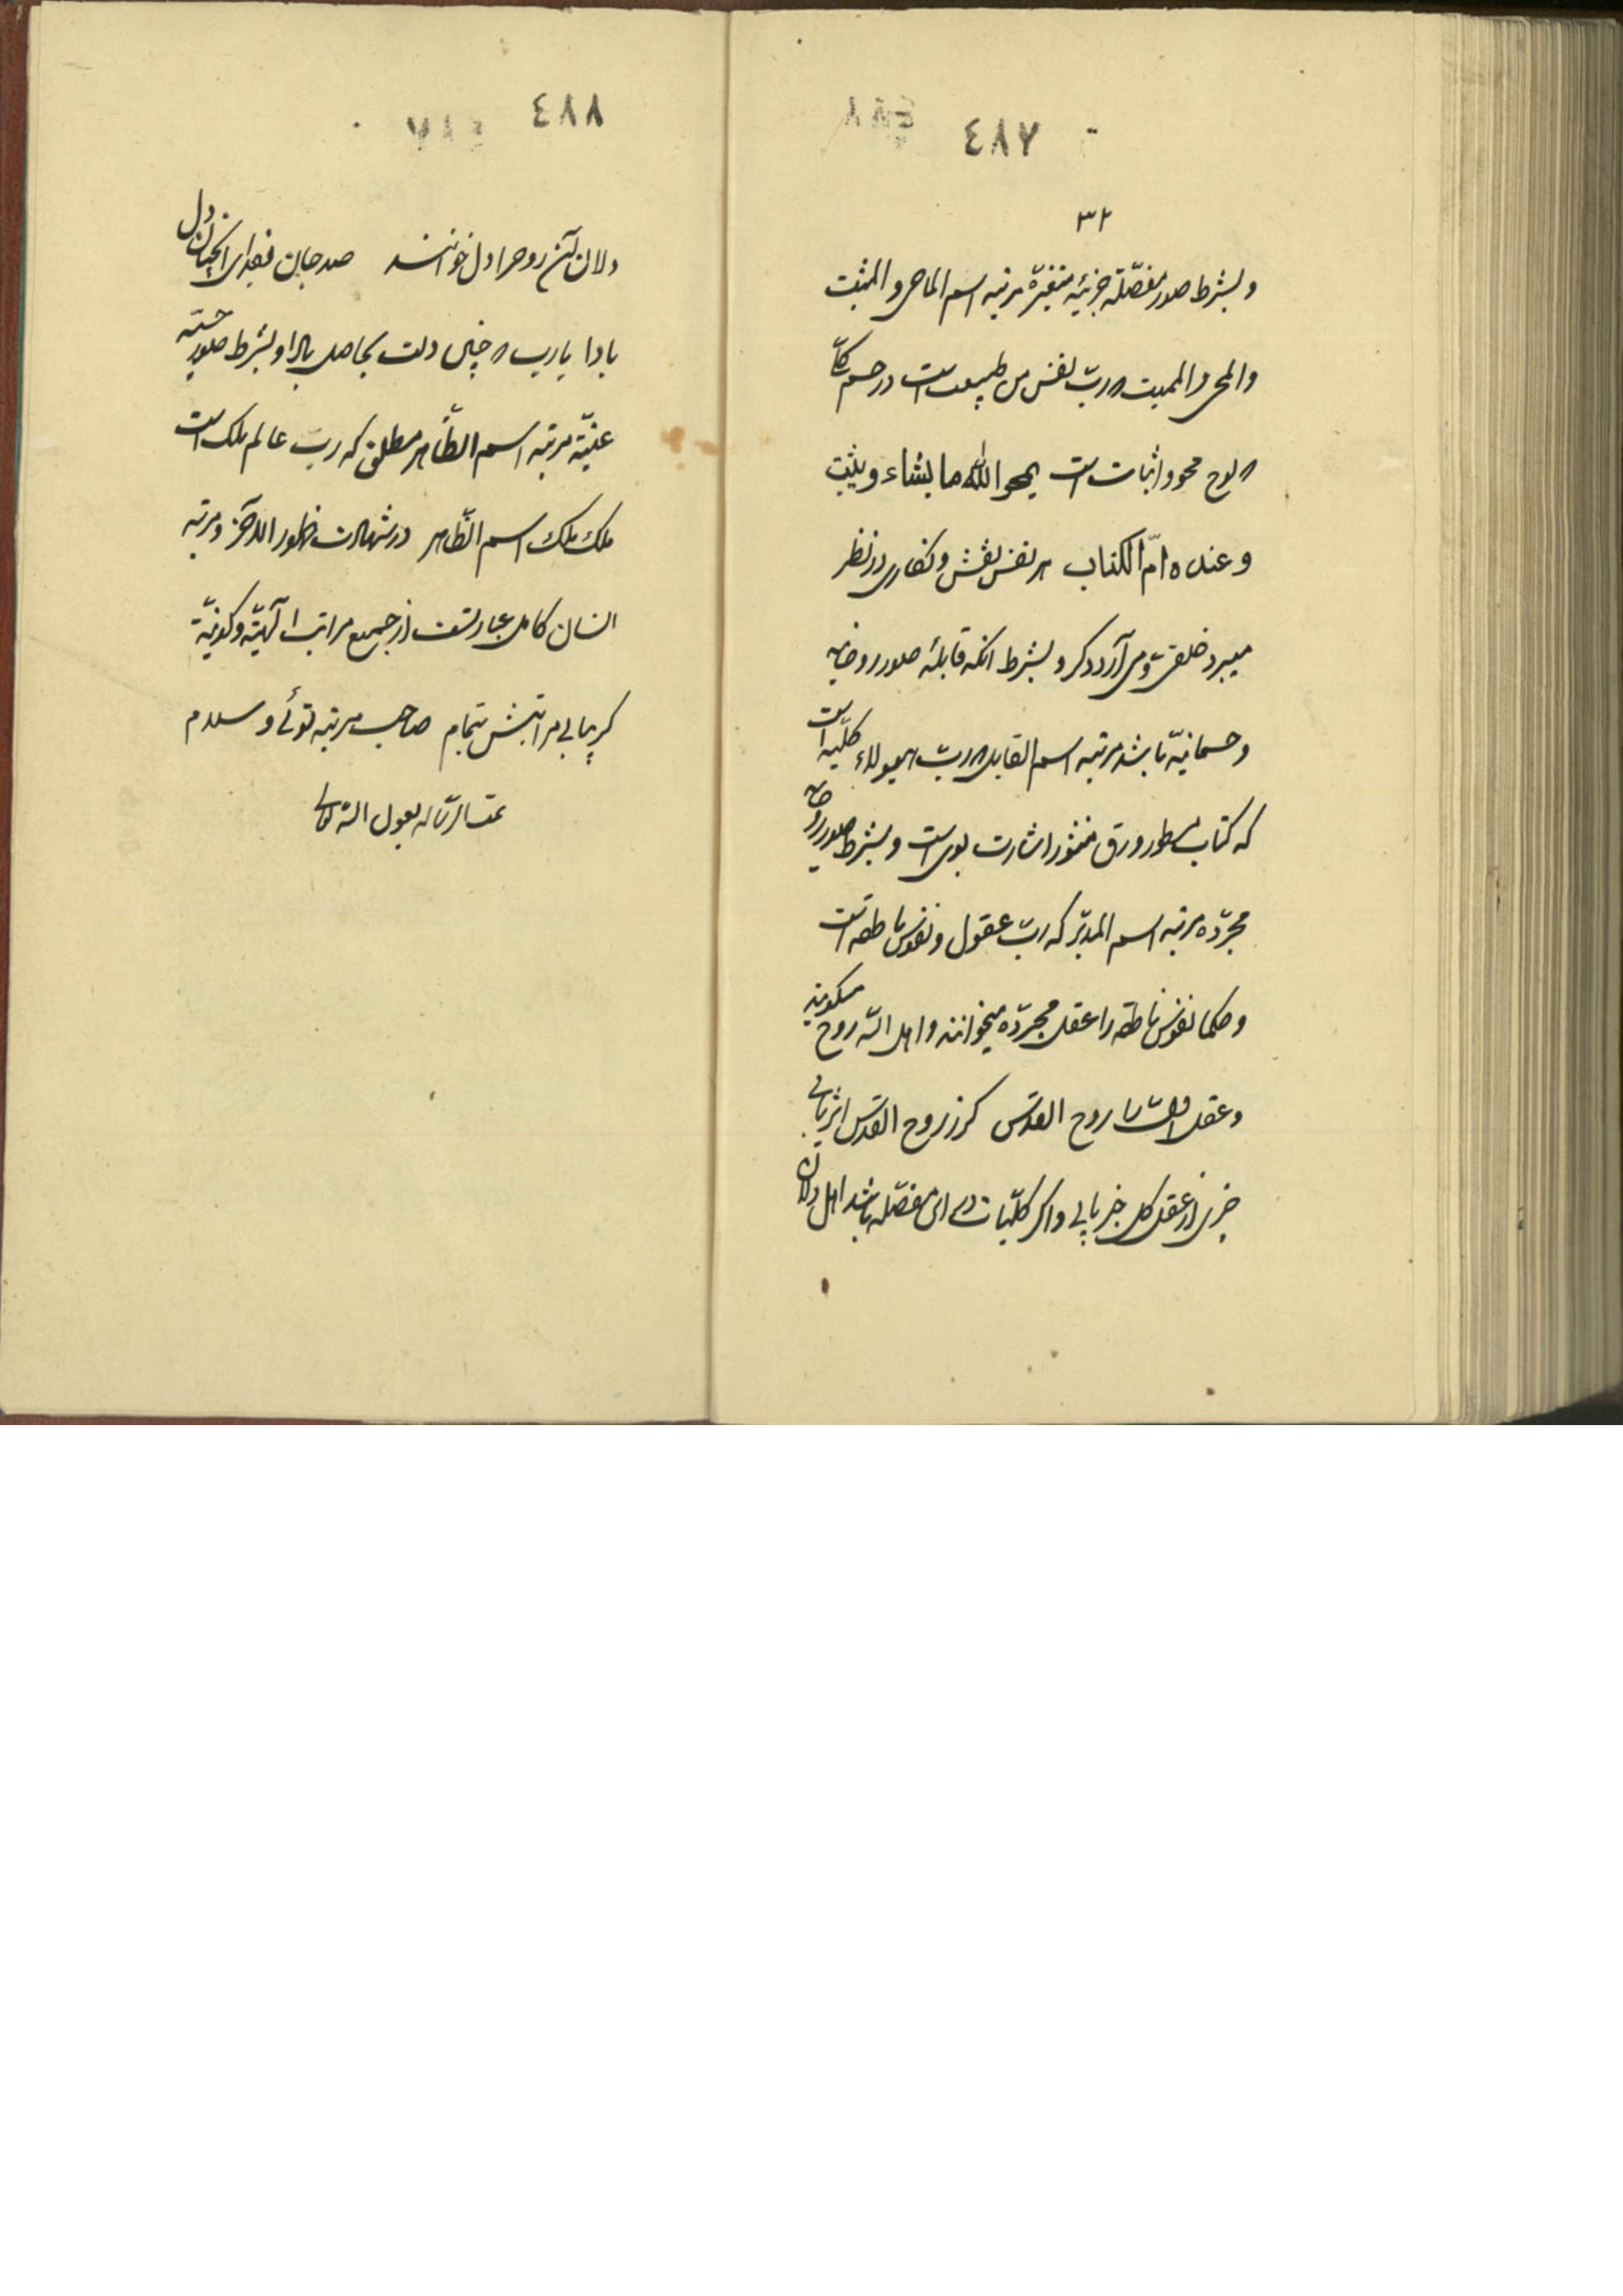 ٤٨٧
٣٢
وبشرط صور مفصّله جزئیّه متغیّره مرتبه اسم الماحی والمثبت
والمحی والممیت که ربّ نفس من طبیعت است در جسم کلّ
که لوح محو واثبات است یمحو الله ما یشاء ویثبت
وعنده امّ الکتاب هر نفس نقش ونگاری در نظر
میبرد خلقی ومی آرد دگر وبشرط انکه قابله صور روحانیه
وجسمانیّه باشد مرتبه اسم القابل که ربّ هیولاء کلّیه است
که کتاب مسطور ورق منثور اشارت بوی است وبشرط صور روحانیه
مجرّده مرتبه اسم المدبّر که ربّ عقول ونفوس ناطقه است
وحکما نفوس ناطقه را عقل مجرّده میخوانند واهل الله روح
وعقل روح القدس گر ز روح القدس اثر یابی
خبری از عقل کل خبر یابی واگر کلّیات مفصّله باشد اهل دلان
٤٨٨
دلان آن روح را دل خوانند صد جان فدای انچنان دل
بادا یارب که چنین دلت بحاصل بادا وبشرط صور حسّیه
عینیّه مرتبه اسم الظّاهر مطلق که ربّ عالم ملک است
ملک ملک اسم الظّاهر در شهادت ظهور ومرتبه
انسان کامل عبارتست از جمیع مراتب الهیّه وکونیّه
گر بیابی مراتبش بتمام صاحب مرتبه توئی وسلام
تمت الرساله بعون الله تعالی